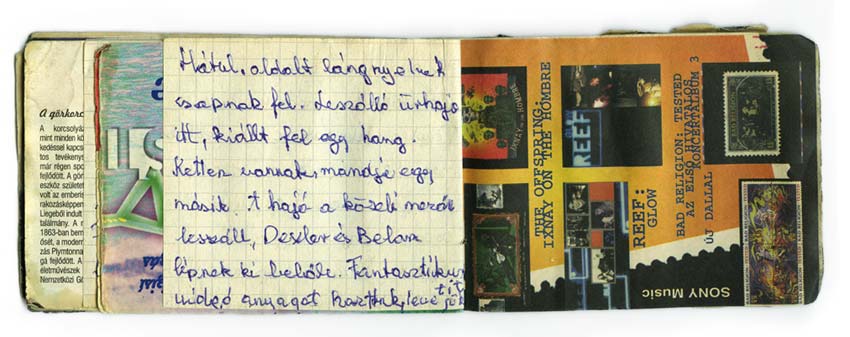 A görkorc
A korcsolyáz
mint minden kö
kedéssel kapcs
tos tevékenys
már régen spo
fejlődött. A gör
eszköz születé
volt az emberis
rakozásképpen
Liegeből indult
találmány. A r
1863-ban bem
ősét, a modern
zás Plymtonna
gá fejlődött. A
életművészek
Nemzetközi Gö
Hátul, oldalt lángnyelvek
csapnak fel. Leszálló űrhajó
itt, kiállt fel egy hang.
Ketten vannak, mondja egy
másik. A hajó a közeli mezőn
leszállt, és
lépnek ki belőle. Fantasztikus
videó anyagot hoztak
THE OFFSPRING:
IXNAY ON THE HOMBRE
REEF
REEF:
GLOW
BAD RELIGION: TESTED
AZ ELSŐ HIVATALOS
KONCERTALBUM 3
ÚJ DALLAL
SONY Music